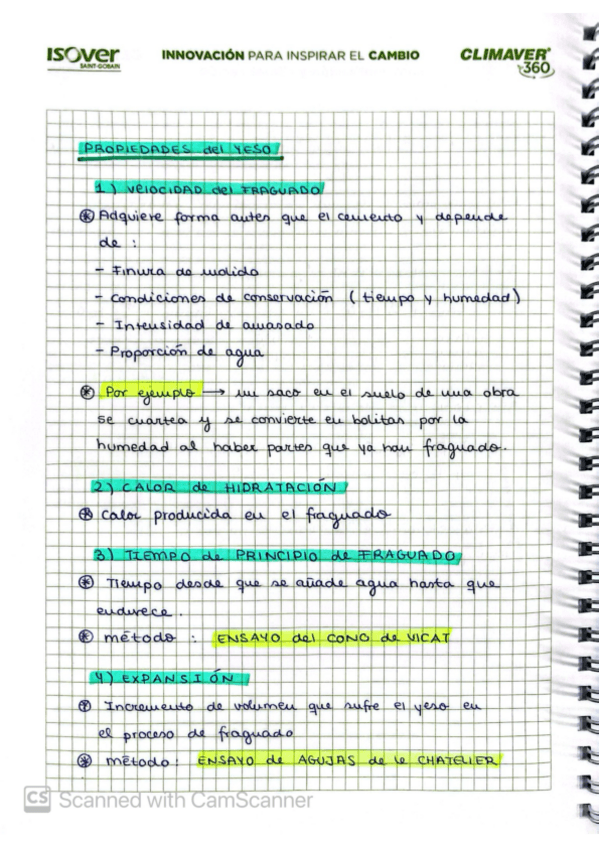 ISOVER
SAINT-GOBAIN
INNOVACIÓN PARA INSPIRAR EL CAMBIO
CLIMAVER®
360
PROPIEDADES del YESO
1) VELOCIDAD del FRAGUADO
* Adquiere forma antes que el cemento y depende
de :
- Finura de molido
- Condiciones de conservación (tiempo y humedad)
- Intensidad de amasado
- Proporción de agua
* Por ejemplo → un saco en el suelo de una obra
se cuartea y se convierte en bolitas por la
humedad al haber partes que ya han fraguado.
2) CALOR de HIDRATACIÓN
* Calor producida en el fraguado
3) TIEMPO de PRINCIPIO de FRAGUADO
* Tiempo desde que se añade agua hasta que
endurece.
* método : ENSAYO del CONO de VICAT
4) EXPANSIÓN
* Incremento de volumen que sufre el yeso en
el proceso de fraguado
* método : ENSAYO de AGUJAS de le CHATELIER
CS Scanned with CamScanner